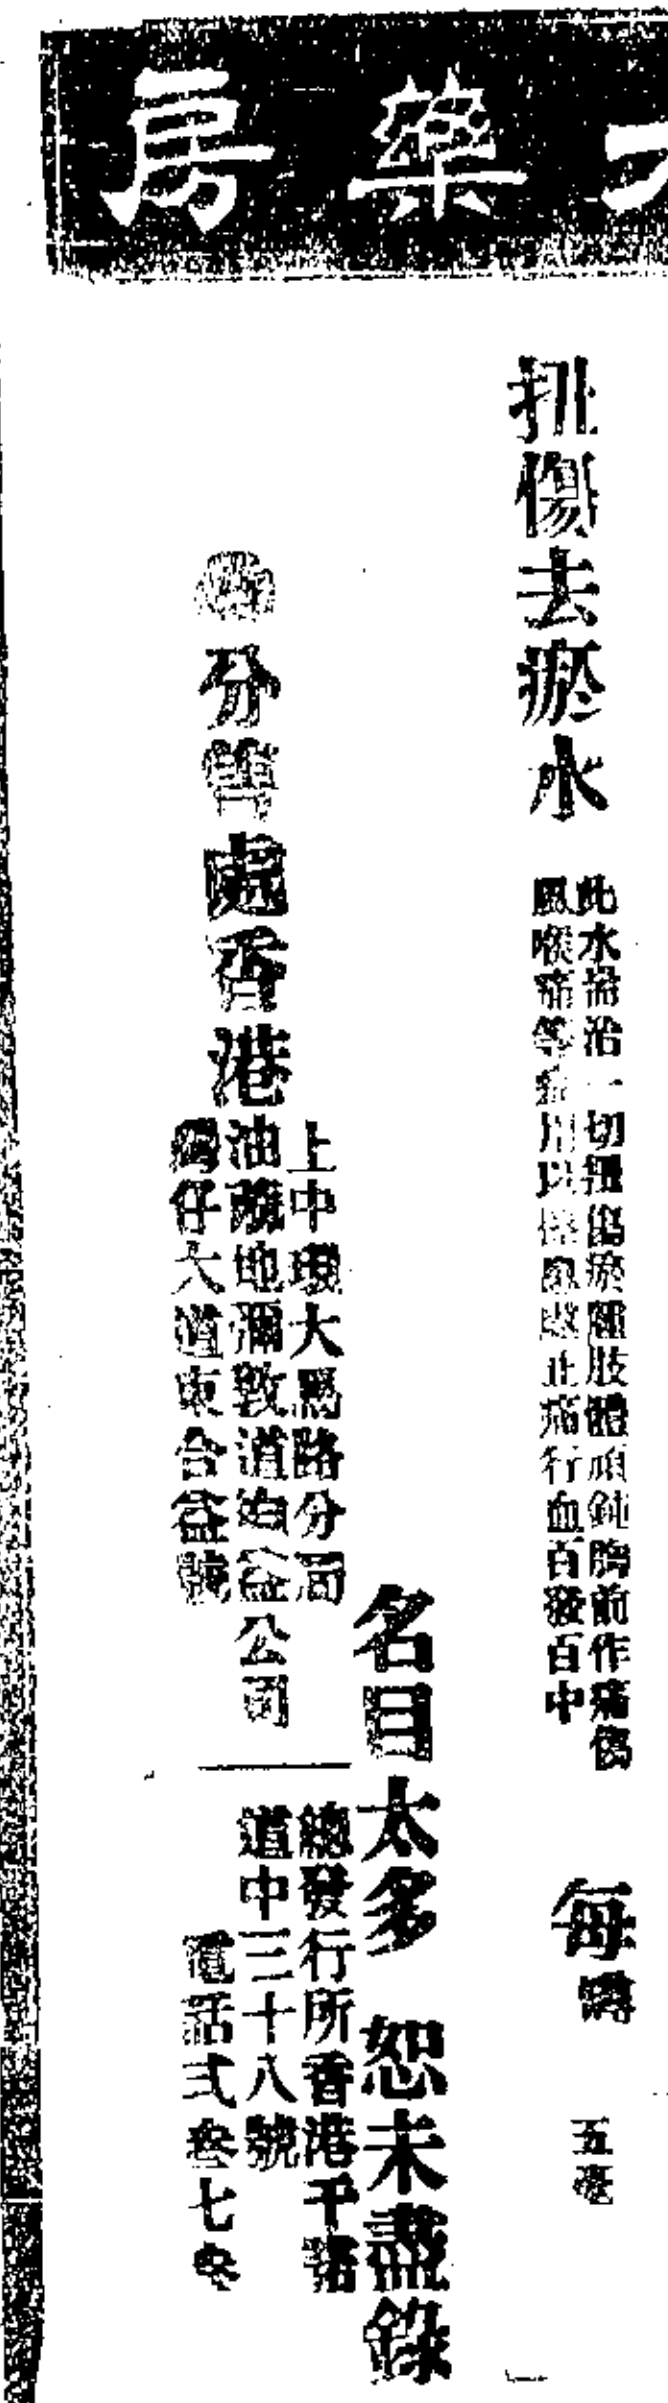 藥房
扭傷去瘀水
此水揸治一切扭傷瘀腫肢體頑鈍胸前作痛傷
風喉痛等症用以搽患處止痛行血百發百中
每樽
五毫
名目太多 恕未盡錄
分售處香港
上中環大馬路分局
油蔴地彌敦道均益公司
灣仔大道東合益號
總發行所香港干諾
道中三十八號
電話弍叁七叁